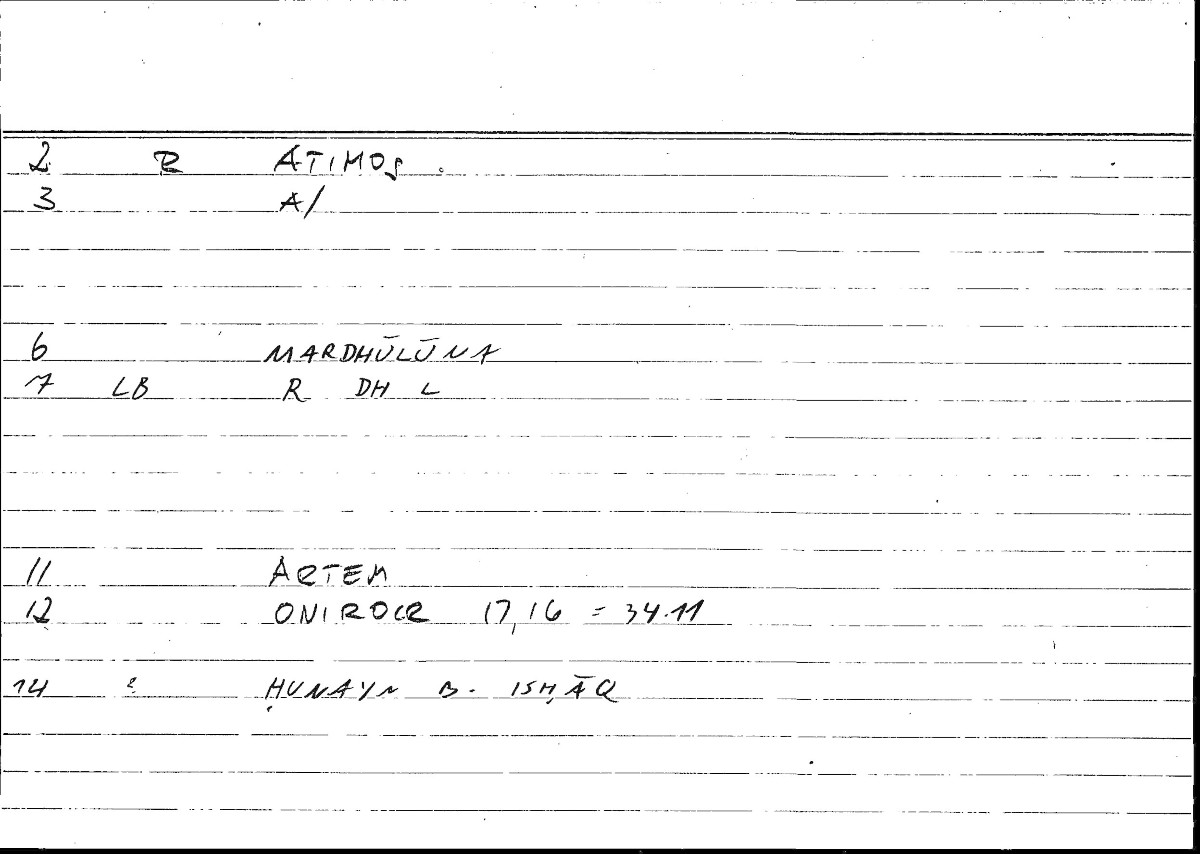 2 R ATIMOS.
3 A/
6 MARDHŪLŪNA
7 LB R DH L
11 ARTEM
12 ONIROCR 17,16 = 34.11
14 2 ḤUNAYN B. ISḤĀQ